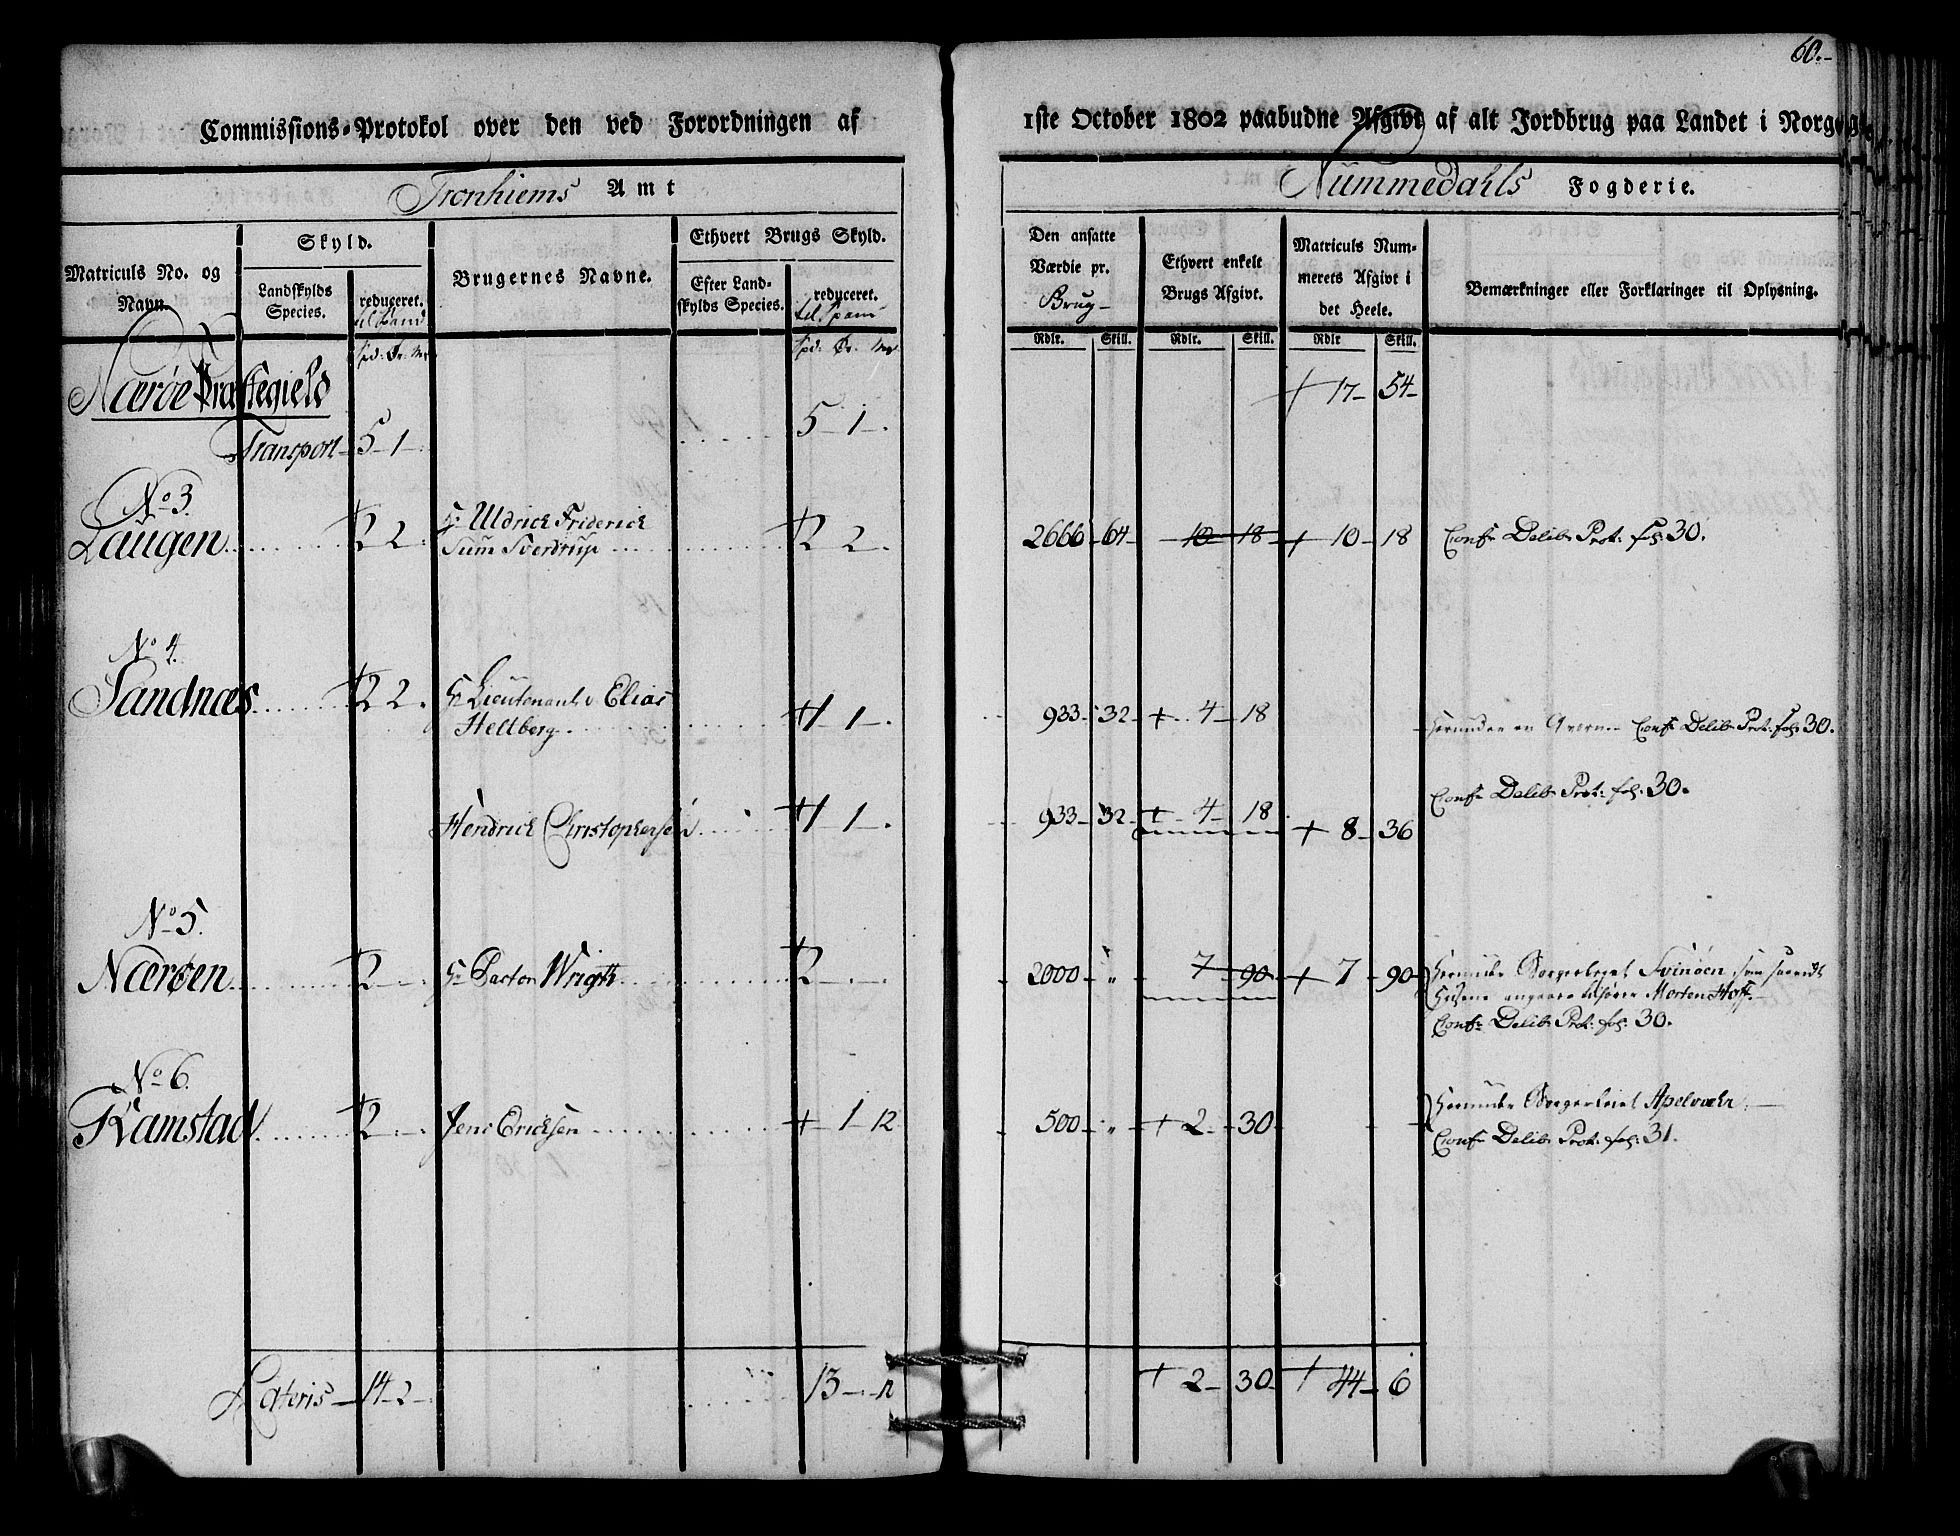 60.-
Commissions-Protokol over den ved Forordningen af 1ste October 1802 paabudne Afgivt af alt Jordbrug paa Landet i Norge
Tronhiems Amt
Nummedahls Fogderie.
Matriculs No. og Navn.
Skyld.
Landskylds Species.
reduceret.
Brugernes Navne.
Ethvert Brugs Skyld.
Efter Landskylds Species.
reduceret. til Span
Den ansatte Værdie pr. Brug-
Ethvert enkelt Brugs Afgivt.
Matriculs Nummerets Afgivt i det Heele.
Bemærkninger eller Forklaringer til Oplysning.
Rdlr. Skill. Rdlr. Skill. Rdlr Skill.
Nærøe Præstegield
+ 17- 54-
Transport 5-1-. 5-1-.
No 3.
Laugen 2 2. Hr Uldrick Friderick
Sum Sverdrup 2 2. 2666-64- 10-18- + 10-18 Conf: Delib: Prot: fol: 30.
No 4.
Sandnæs 2 2. Hr Lieutenant Elias
Heltberg 1 1-. 933-32- + 4-18 herunder en Conf: Delib: Prot: fol: 30.
Hendrick Christophersen 1 1-. 933-32- + 4-18 + 8-36 Conf: Delib: Prot: fol: 30.
No 5.
Nærøen 2 Hr Pastor Wrigth 2 2000-„- 7-90- + 7-90- herunder Svinøen som
Husene angaaer tilhører Morten Hoff.
Conf: Delib: Prot: fol: 30.
No 6.
Ramstad 2 Jens Ericksen + 1 12 500-„- + 2-30- herunder Apelvær
Conf: Delib: Prot: fol: 31.
Lateris 14-2- 13-„-12 + 2-30- + 44-6